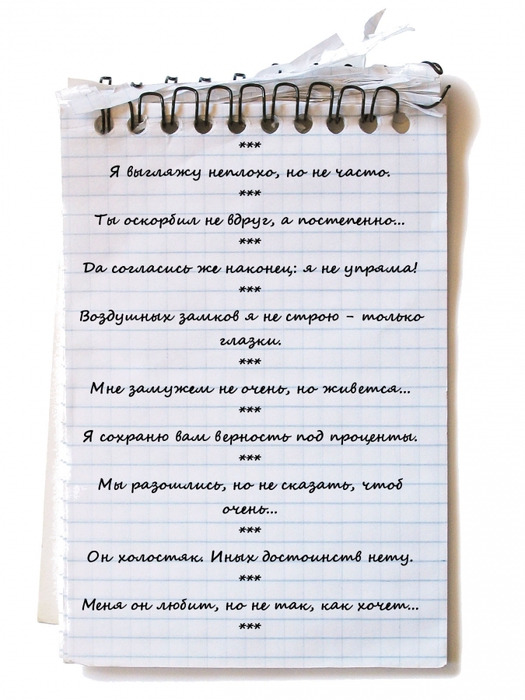 ***
Я выгляжу неплохо, но не часто.
***
Ты оскорбил не вдруг, а постепенно...
***
Да согласись же наконец: я не упряма!
***
Воздушных замков я не строю – только
глазки.
***
Мне замужем не очень, но живется...
***
Я сохраню вам верность под проценты.
***
Мы разошлись, но не сказать, чтоб
очень...
***
Он холостяк. Иных достоинств нету.
***
Меня он любит, но не так, как хочет...
***